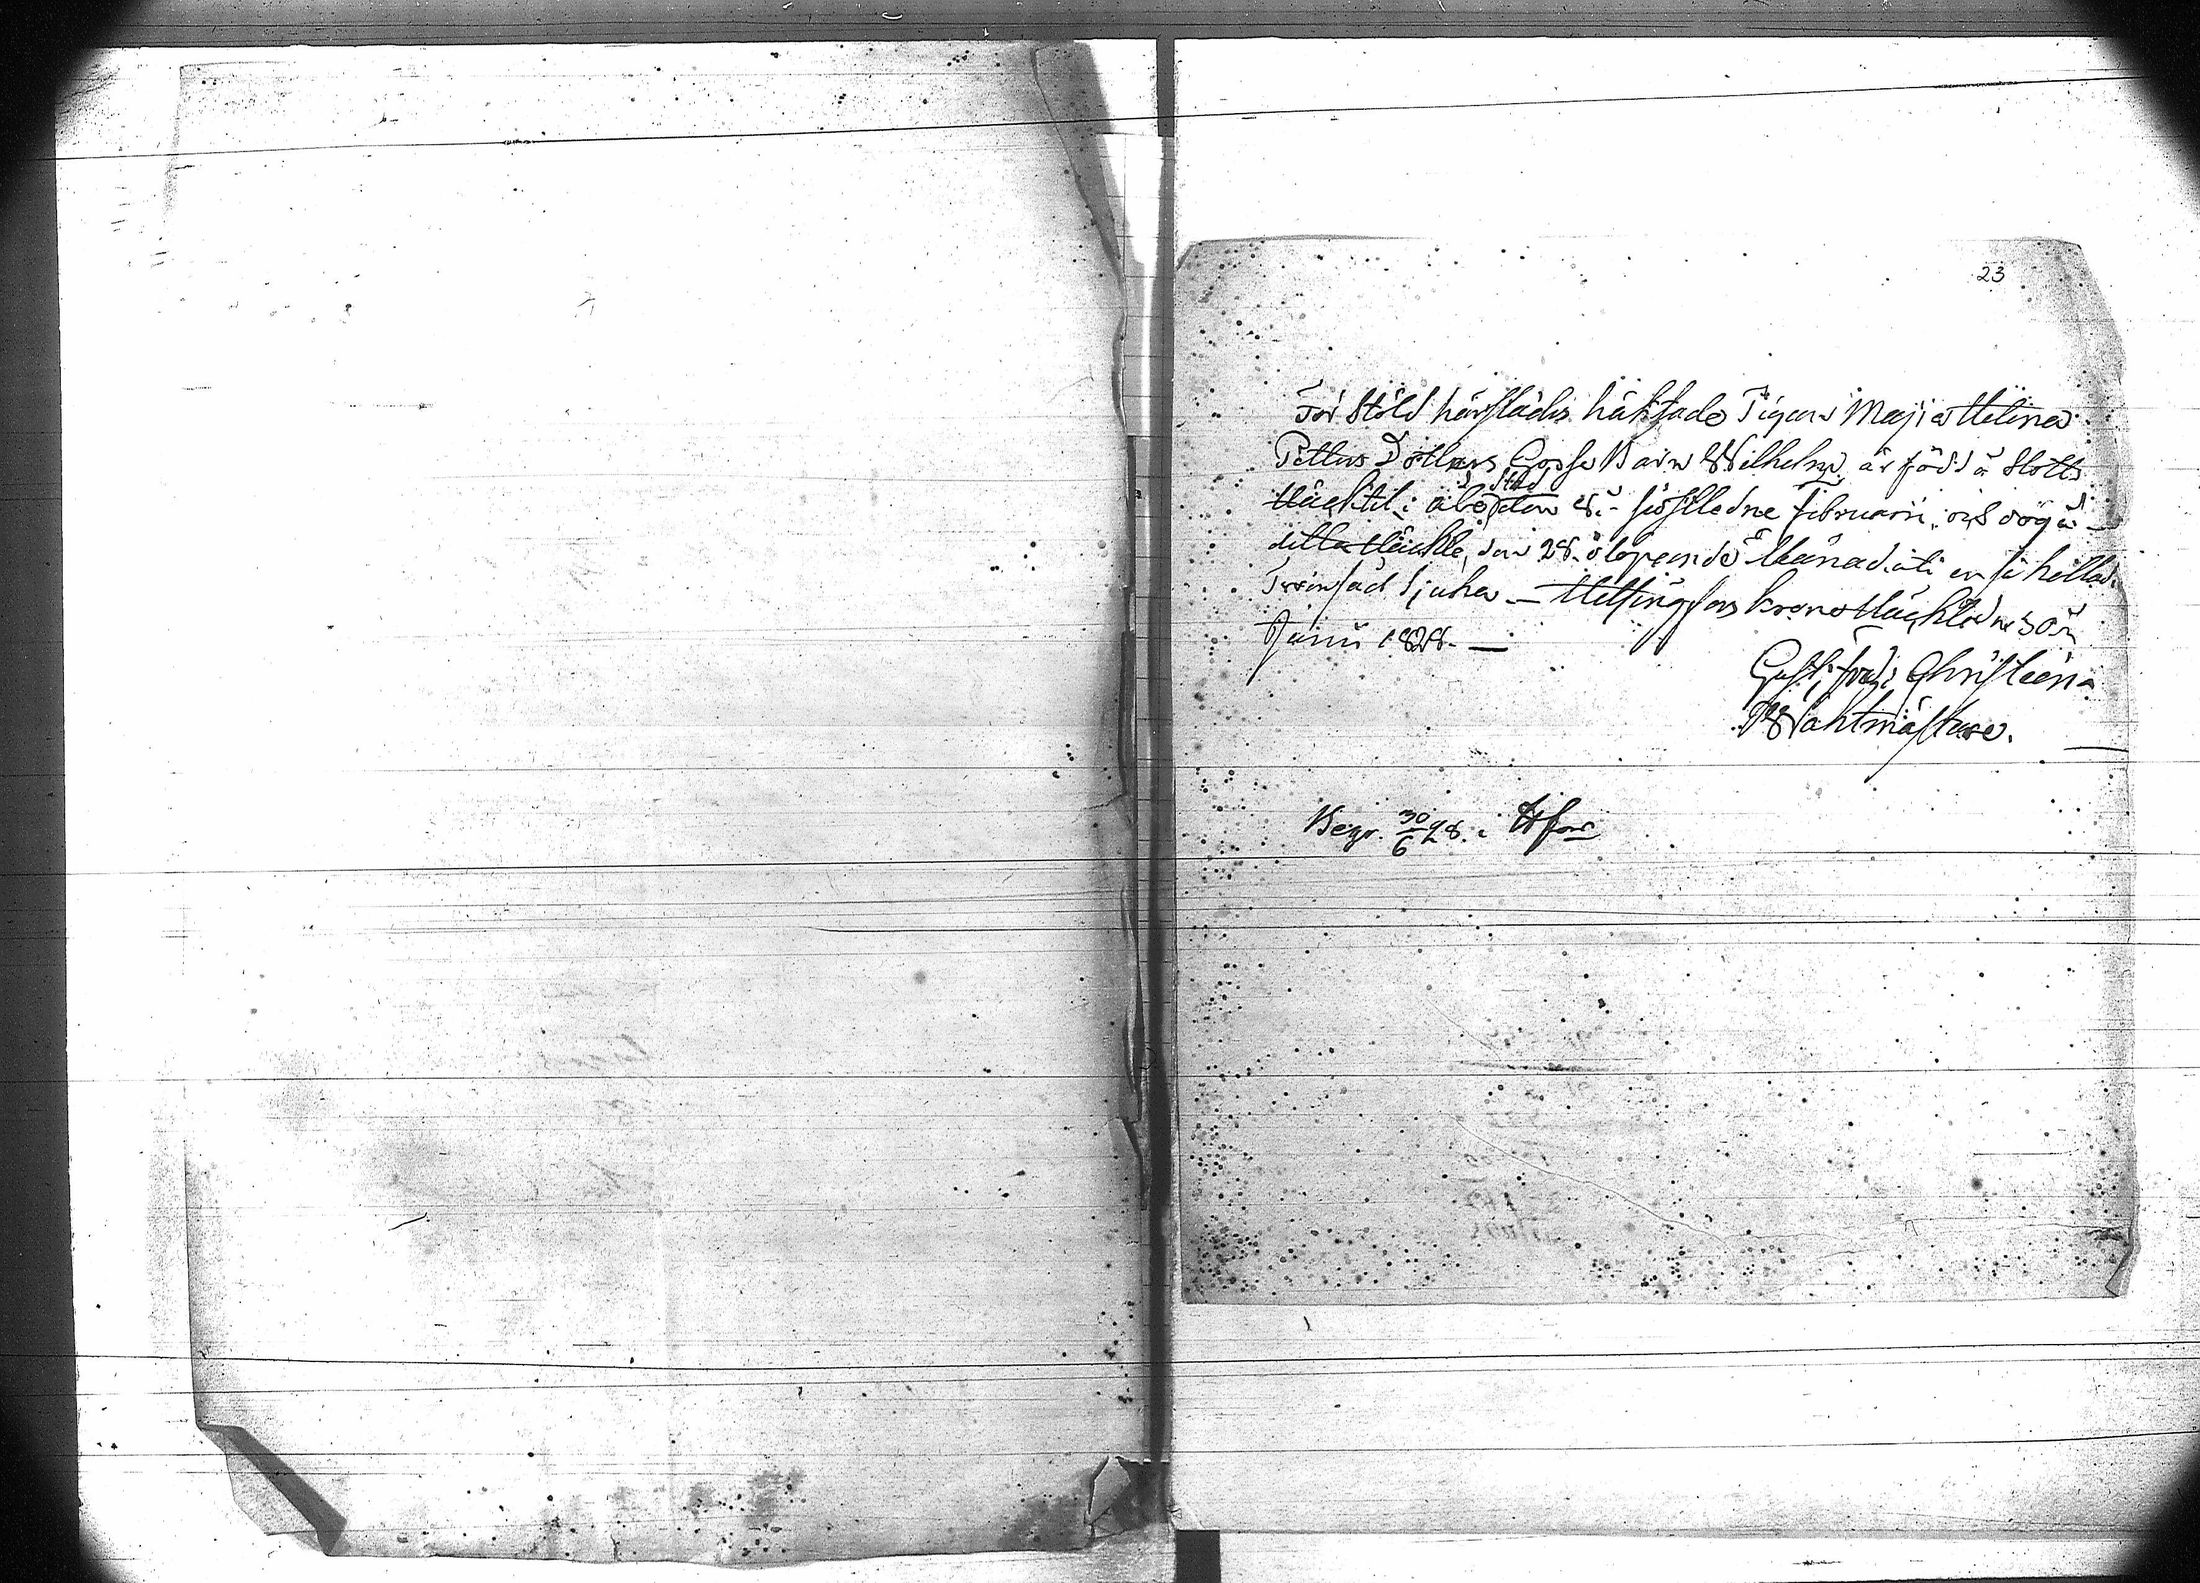 23
För Stöld härstädes häktade Pigans Maria Helena
Pettersdotters Gosse Barn Wilhelm, är född å Slotts
Häktet i Åbo Stad den 8. sistledne februarii, och dog å
detta Häkte, den 28. löpande Månad, uti en så kallad
sjuka — Helsingfors krono Häkte den 30
Junii 1828. —
Gust: fred: Christiern
Wahtmästare.
Begr. 30/6 28. i H:fors